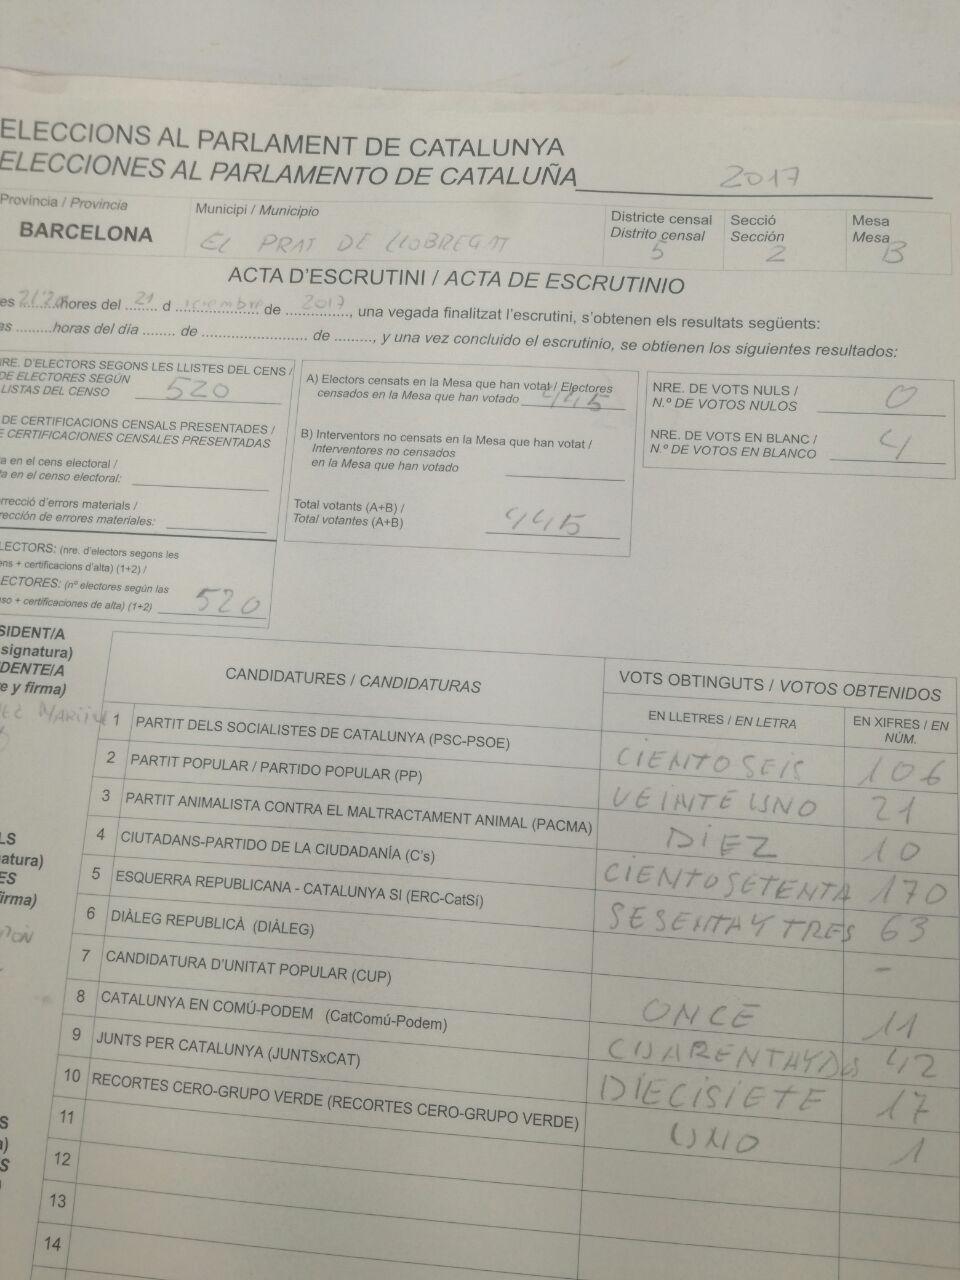 ELECCIONS AL PARLAMENT DE CATALUNYA
ELECCIONES AL PARLAMENTO DE CATALUÑA 2017
Província / Provincia
BARCELONA
Municipi / Municipio
EL PRAT DE LLOBREGAT
Districte censal
Distrito censal
5
Secció
Sección
2
Mesa
Mesa
B
ACTA D'ESCRUTINI / ACTA DE ESCRUTINIO
hores del 21 d iciembre de 2017, una vegada finalitzat l'escrutini, s'obtenen els resultats següents:
horas del día ........ de ........................ de ........., y una vez concluido el escrutinio, se obtienen los siguientes resultados:
NRE. D'ELECTORS SEGONS LES LLISTES DEL CENS /
DE ELECTORES SEGÚN
LISTAS DEL CENSO 520
DE CERTIFICACIONS CENSALS PRESENTADES /
CERTIFICACIONES CENSALES PRESENTADAS
en el cens electoral /
en el censo electoral:
errors materials /
de errores materiales:
ELECTORS: (nre. d'electors segons les
+ certificacions d'alta) (1+2) /
ELECTORES: (nº electores según las
+ certificaciones de alta) (1+2) 520
A) Electors censats en la Mesa que han votat / Electores
censados en la Mesa que han votado 445
B) Interventors no censats en la Mesa que han votat /
Interventores no censados
en la Mesa que han votado
Total votants (A+B) /
Total votantes (A+B) 445
NRE. DE VOTS NULS /
N.º DE VOTOS NULOS 0
NRE. DE VOTS EN BLANC /
N.º DE VOTOS EN BLANCO 4
signatura)
y firma)
CANDIDATURES / CANDIDATURAS
VOTS OBTINGUTS / VOTOS OBTENIDOS
EN LLETRES / EN LETRA
EN XIFRES / EN
NÚM.
1 PARTIT DELS SOCIALISTES DE CATALUNYA (PSC-PSOE) CIENTO SEIS 106
2 PARTIT POPULAR / PARTIDO POPULAR (PP) VEINTE UNO 21
3 PARTIT ANIMALISTA CONTRA EL MALTRACTAMENT ANIMAL (PACMA) DIEZ 10
4 CIUTADANS-PARTIDO DE LA CIUDADANÍA (C's) CIENTO SETENTA 170
5 ESQUERRA REPUBLICANA - CATALUNYA SI (ERC-CatSí) SESENTA Y TRES 63
6 DIÀLEG REPUBLICÀ (DIÀLEG) -
7 CANDIDATURA D'UNITAT POPULAR (CUP) ONCE 11
8 CATALUNYA EN COMÚ-PODEM (CatComú-Podem) CUARENTA Y DOS 42
9 JUNTS PER CATALUNYA (JUNTSxCAT) DIECISIETE 17
10 RECORTES CERO-GRUPO VERDE (RECORTES CERO-GRUPO VERDE) UNO 1
11
12
13
14